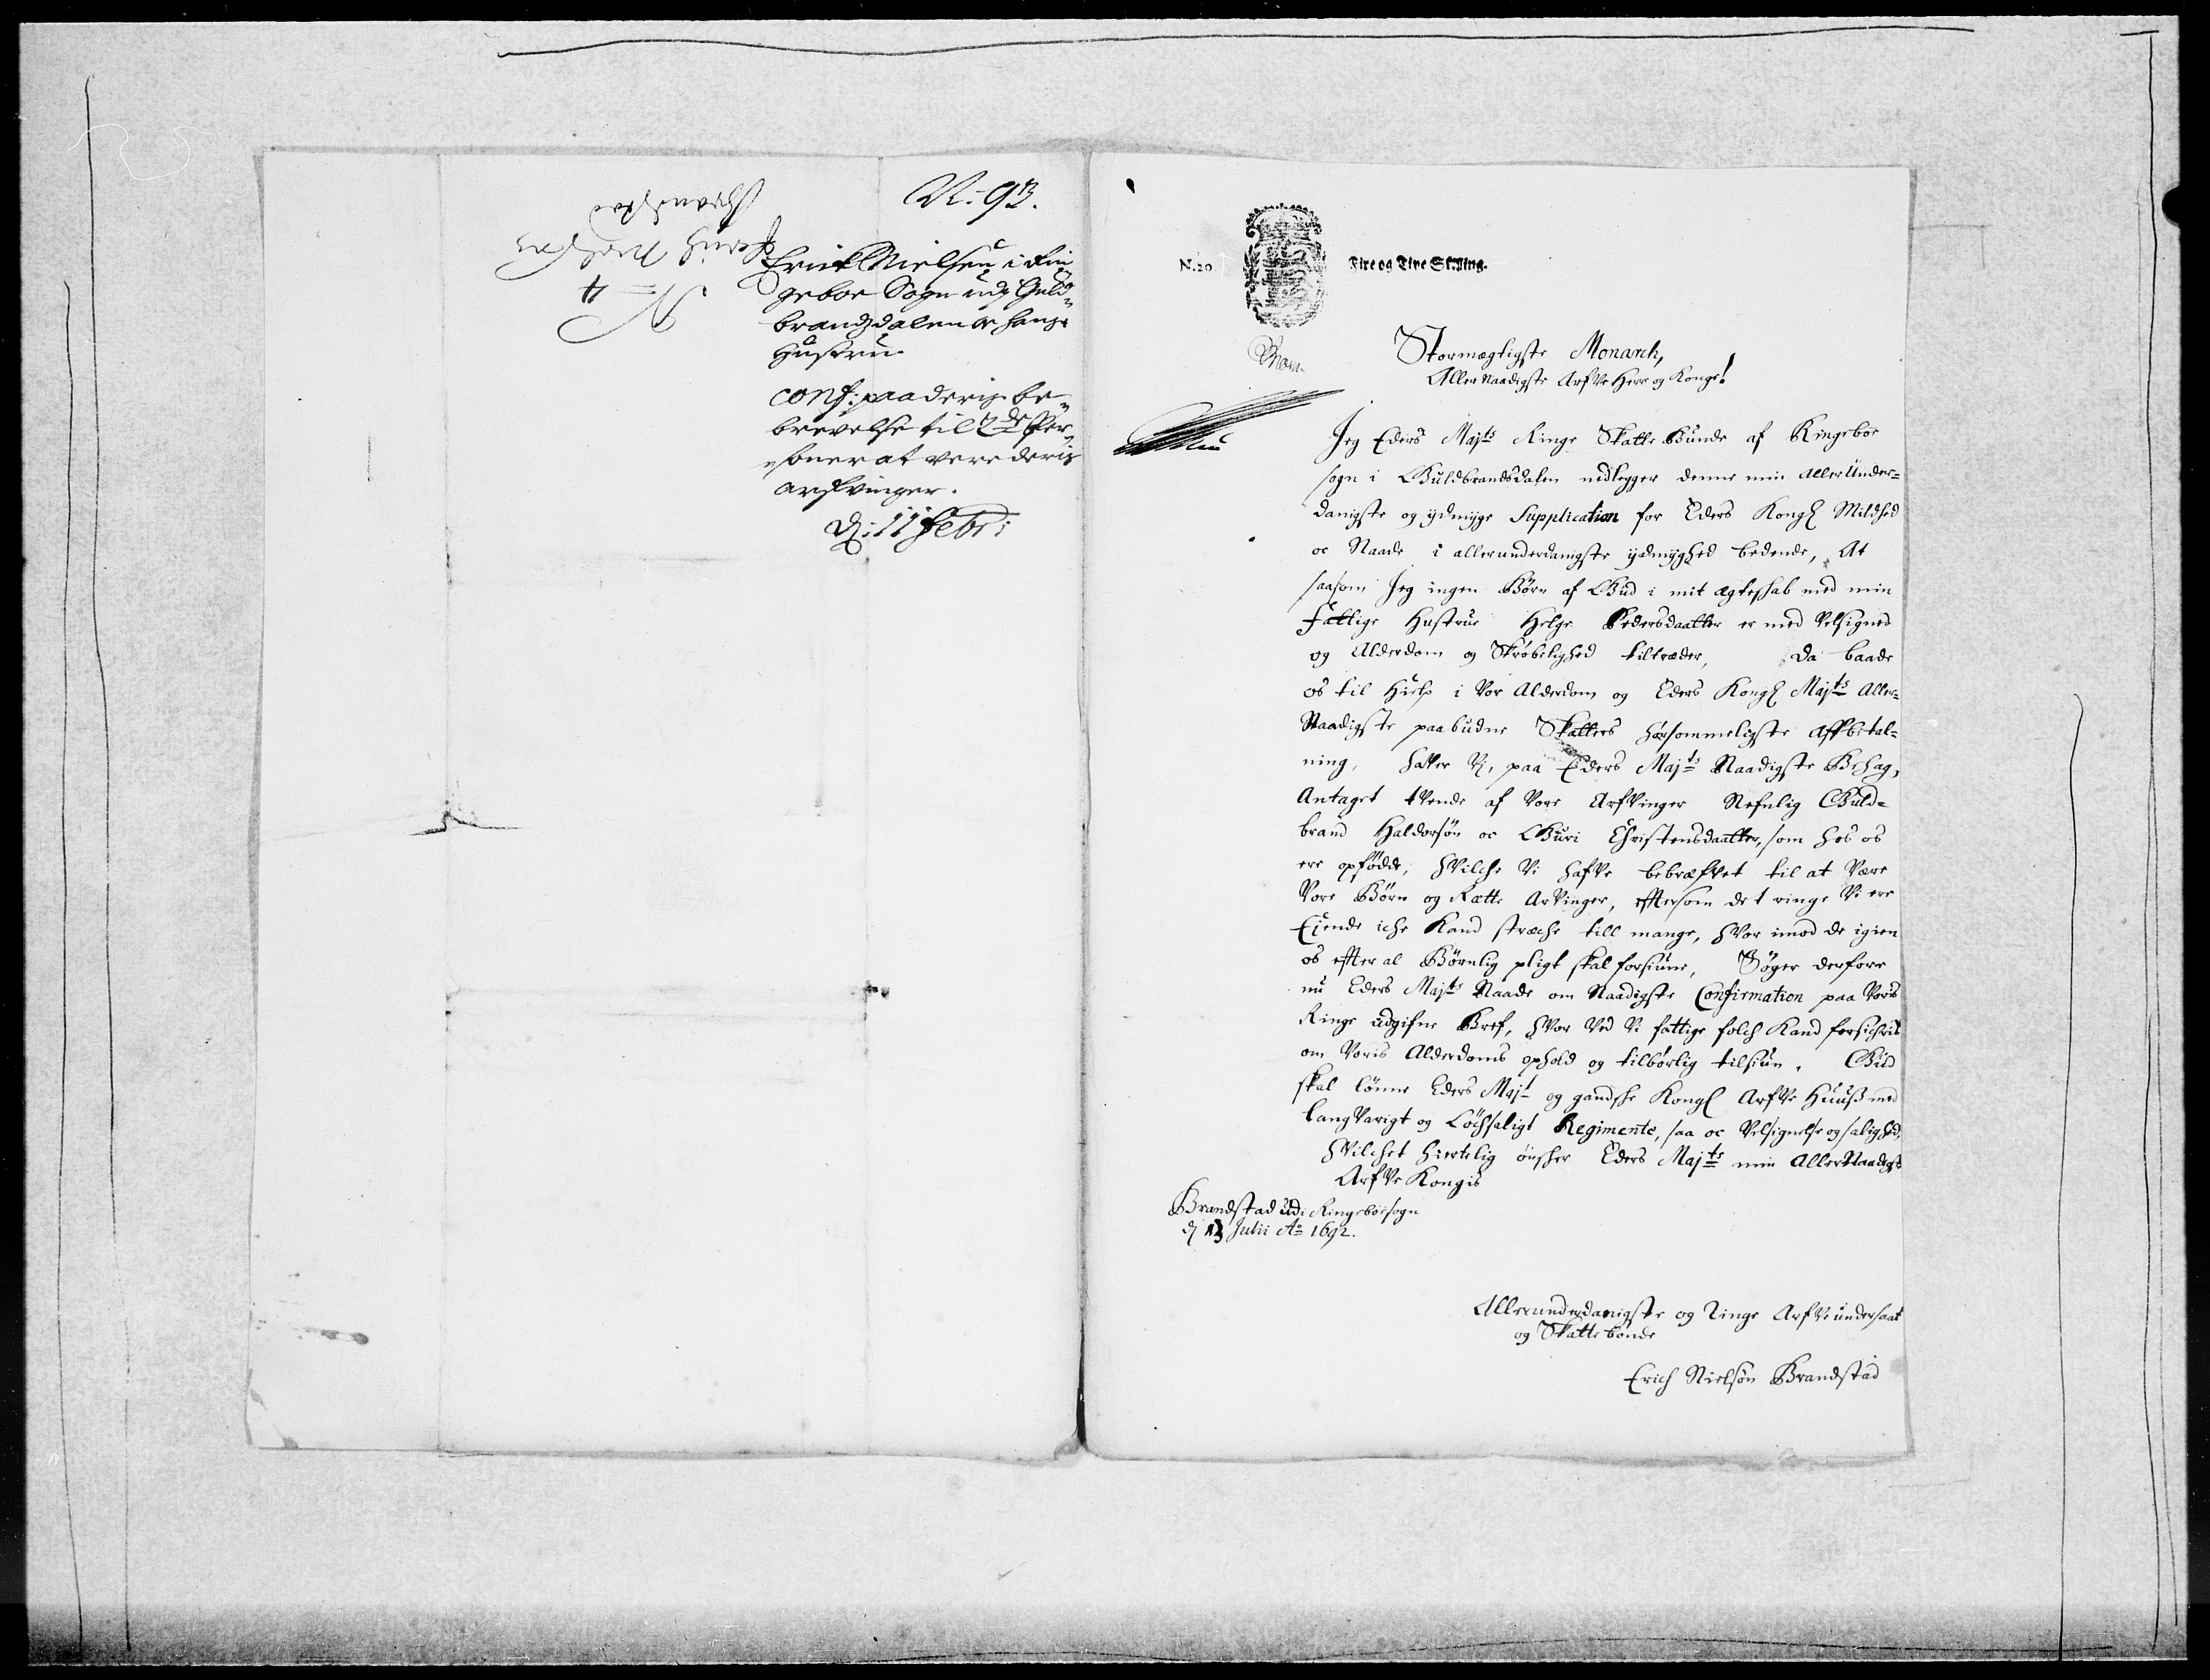 N: 93.
Erick Nielsen i Rin
geboe Sogn udj Guld
brandzdalen oc hans
Hustrue
conf: paa deris be
brevelse til 2de Per
soner at vere deris
arfvinger.
dj: 11 Febr:
Erich Nielsøn
Brandstad
N = 4
N.20 Fire og Tive Skilling.
Stormægtigste Monarch,
Aller Naadigste Arfve Herre og Konge!
Jeg Eders Majts Ringe Skatte Bunde af Ringeboe
sogn i Guldbrandsdalen nedlegger denne min allerunder=
danigste og ydmyge Supplication for Eders Kongl Mildhed
oc Naade i allerunderdanigste ydmyghed bedende, At
saasom Jeg ingen Børn af Gud i mit ægteskab med min
Fattige Hustrue Helge Pedersdaatter er med Velsigned
og Alderdom og Skrøbelighed tiltræder, Da baade
os til Hielp i Vor Alderdom og Eders Kongl Majts Aller=
Naadigste paabudne Skatters hørsommeligste Affbetal=
ning, hafver Vj, paa Eders Majts Naadigste Behag,
Antaget tvende af Vore Arfvinger Nefnlig Guld=
brand Haldorsøn oc Guri Christensdaatter, som hos os
ere opfødde, hvilche Vi hafve bebrefvet til at Være
Vore Børn og Rætte Arvinger, efftersom det ringe Vi ere
Ejende iche Kand stræche till mange, hvor imod de igien
os effter al Børnlig pligt skal forsiune, Søger derfore
nu Eders Majts Naade om Naadigste Confirmation paa Voris
Ringe udgifne Bref, hvor Ved Vi fattige folch Kand forsichris
om Voris Alderdoms ophold og tilbørlig tilsiun. Gud
skal lønne Eders Majt og gandske Kongl Arfve Huuss med
langvarigt og Løchsaligt Regimente, saa oc Velsignelse og salighed,
hvilchet hiertelig ønsker Eders Majts min AllerNaadigste
Arfve Kongis
Brandstad udi Ringeboe sogn
dj 13 Julii Ao 1692.
Allerunderdanigste og Ringe Arfve undersaat
og Skatte bonde
Erich Nielsøn Brandstad